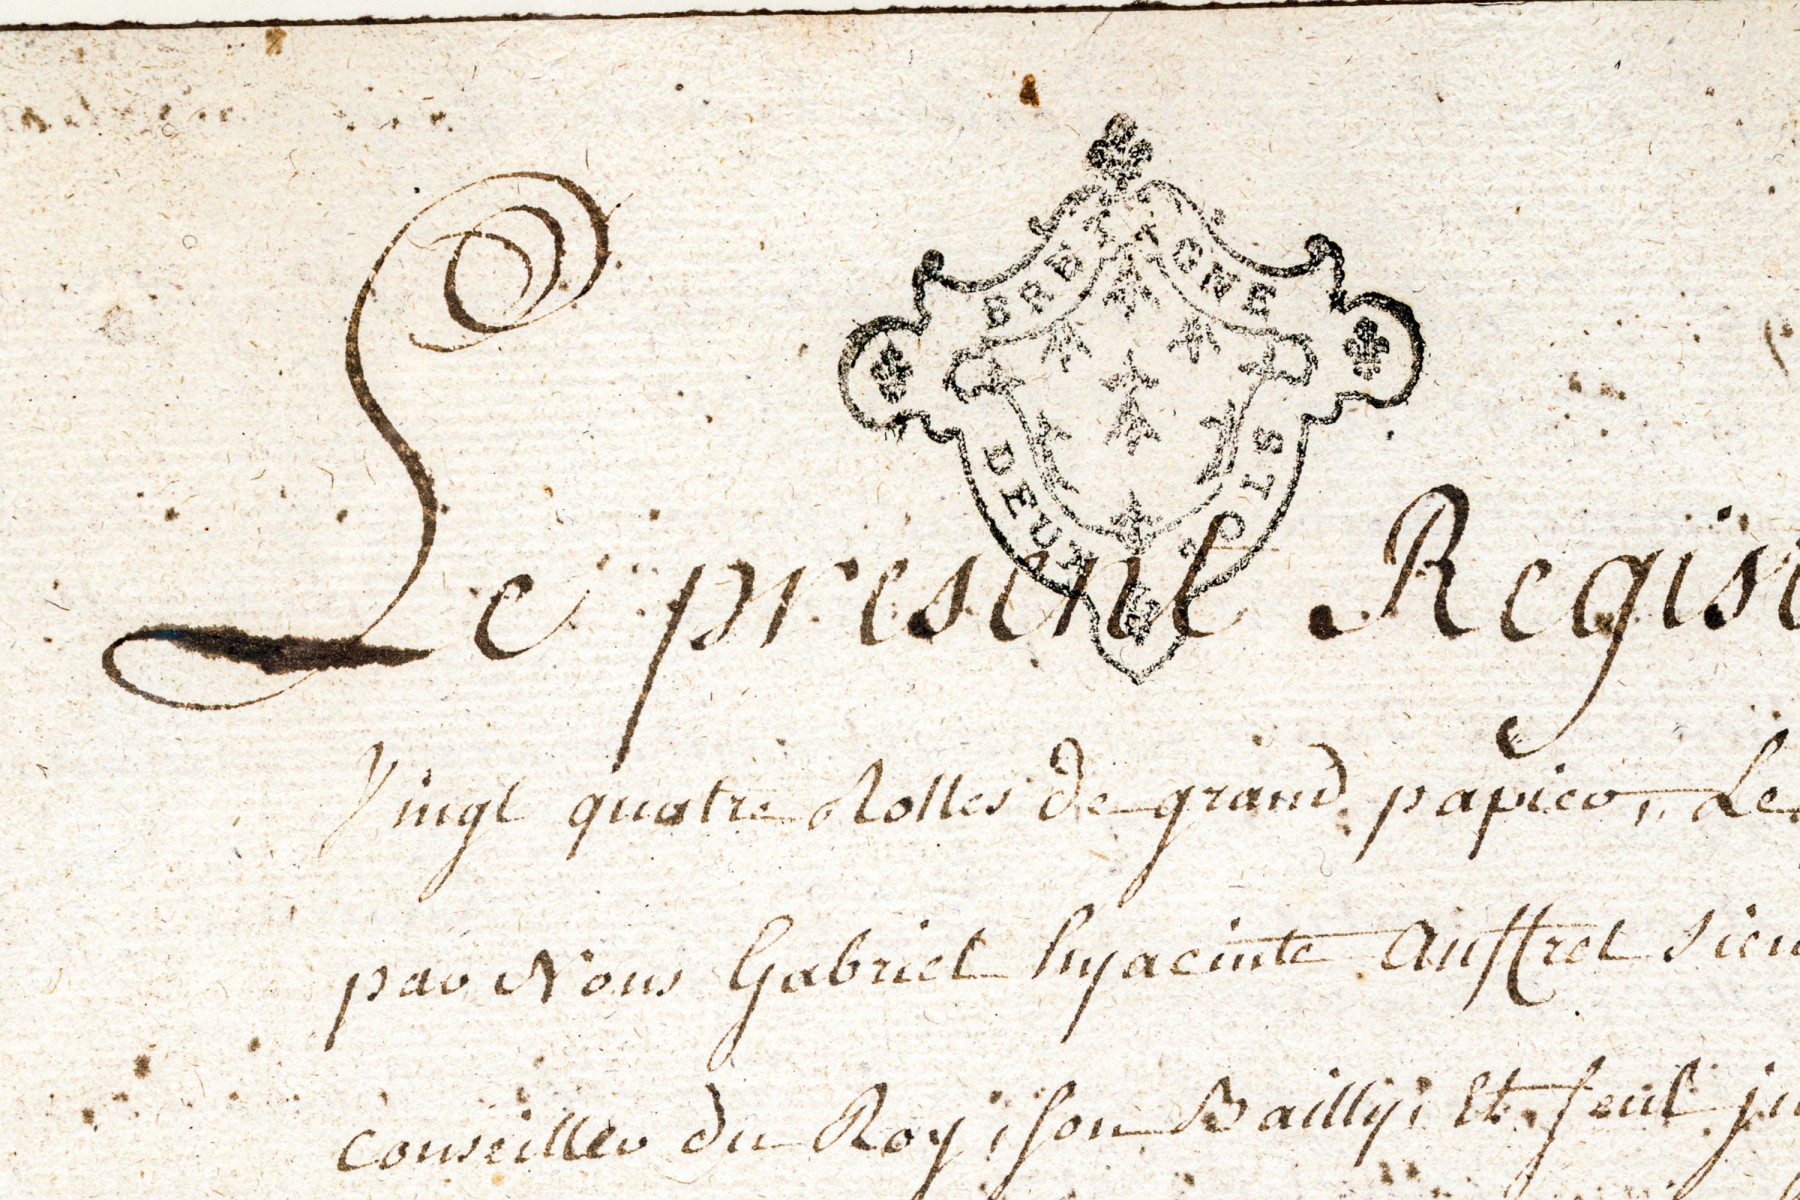 BRETAGNE
DEUX SOLS
Le present Regist
Vingt quatre Rolles de grand papier, Le
par Nous Gabriel hyacinte Auffret sieu
conseiller du Roy, son Bailly, Et seul ju